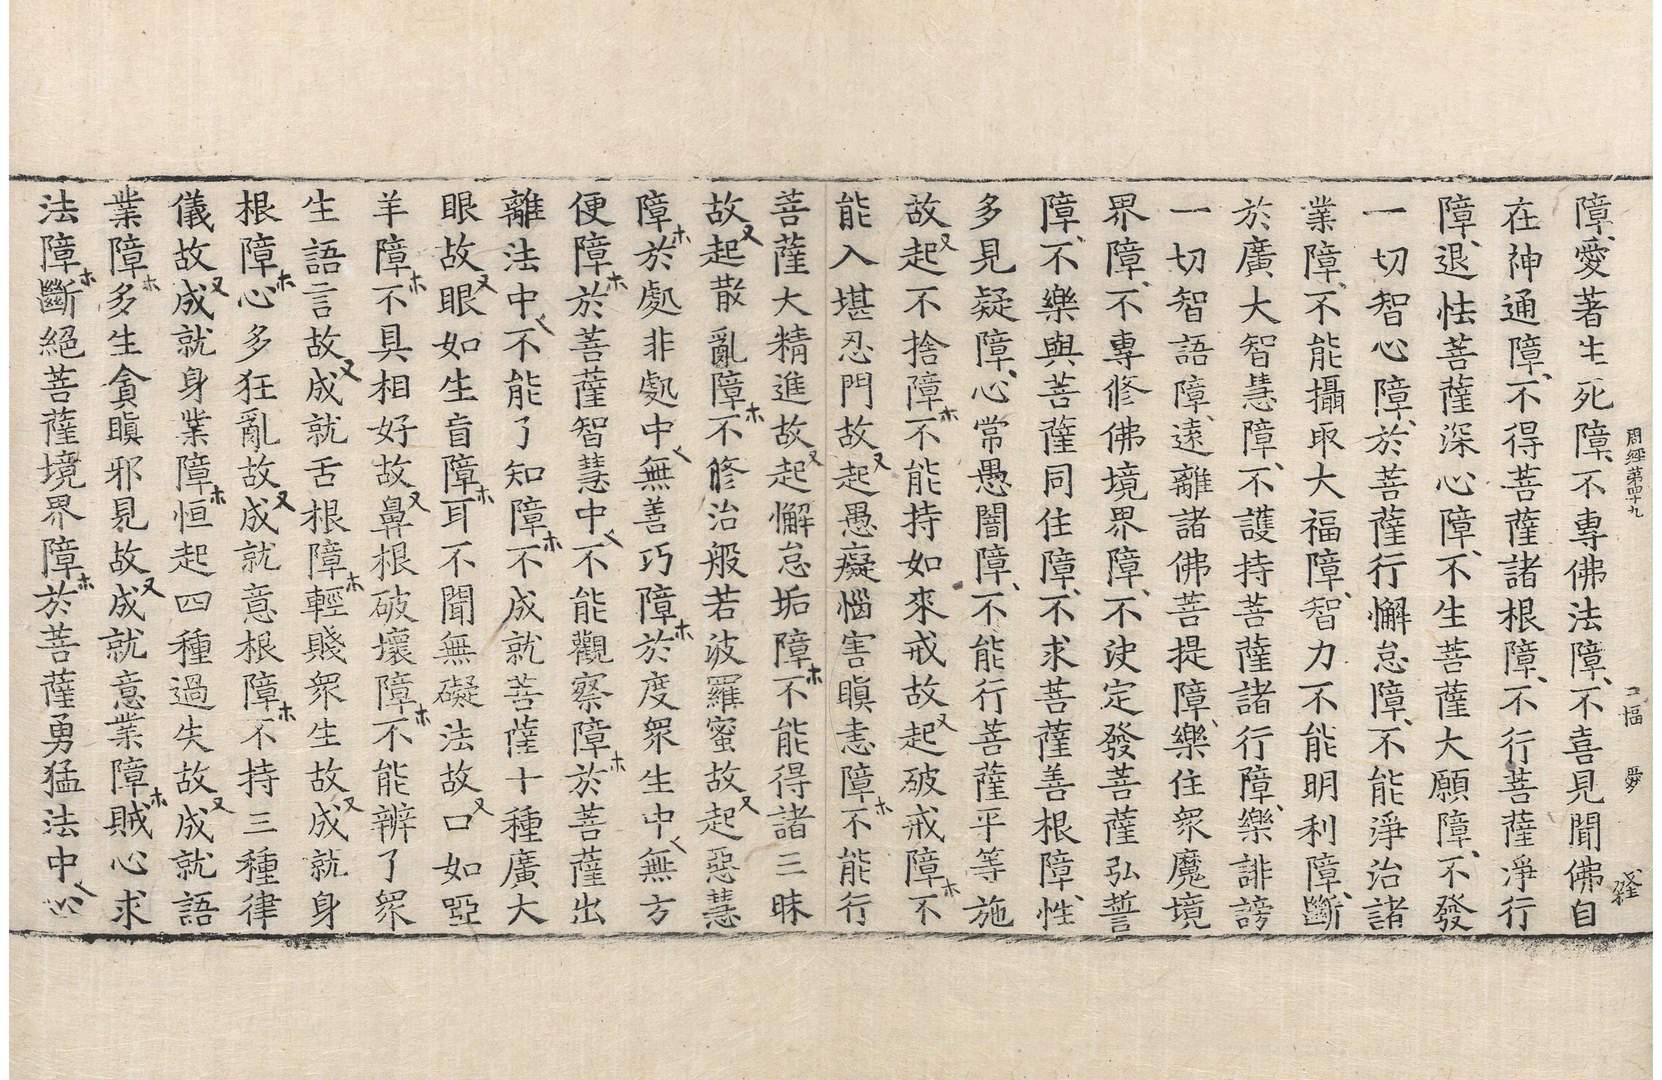 周經第四十九
二幅
晏
障愛著生死障不專佛法障不喜見聞佛自
在神通障不得菩薩諸根障不行菩薩淨行
障退怯菩薩深心障不生菩薩大願障不發
一切智心障於菩薩行懈怠障不能淨治諸
業障不能攝取大福障智力不能明利障斷
於廣大智慧障不護持菩薩諸行障樂誹謗
一切智語障遠離諸佛菩提障樂住衆魔境
界障不專修佛境界障不決定發菩薩弘誓
障不樂與菩薩同住障不求菩薩善根障性
多見疑障心常愚闇障不能行菩薩平等施
故起不捨障不能持如來戒故起破戒障不
能入堪忍門故起愚癡惱害瞋恚障不能行
菩薩大精進故起懈怠垢障不能得諸三昧
故起散亂障不脩治般若波羅蜜故起惡慧
障於處非處中無善巧障於度衆生中無方
便障於菩薩智慧中不能觀察障於菩薩出
離法中不能了知障不成就菩薩十種廣大
眼故眼如生盲障耳不聞無礙法故口如啞
羊障不具相好故鼻根破壞障不能辨了衆
生語言故成就舌根障輕賤衆生故成就身
根障心多狂亂故成就意根障不持三種律
儀故成就身業障恒起四種過失故成就語
業障多生貪瞋邪見故成就意業障賊心求
法障斷絕菩薩境界障於菩薩勇猛法中心